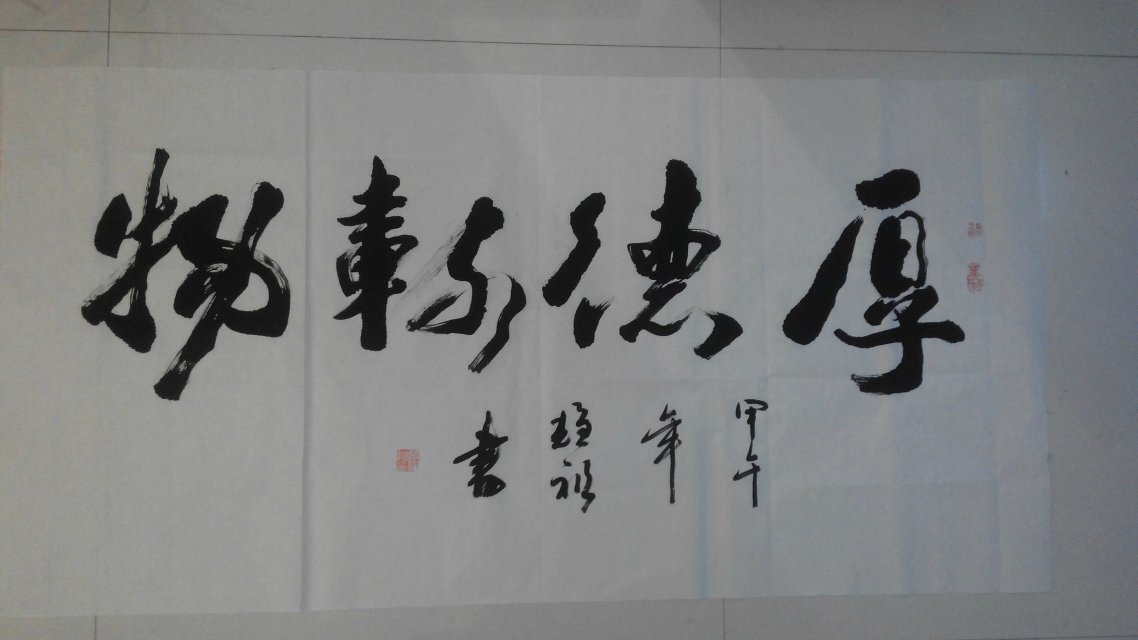 厚德載物
甲午
年
祖
書